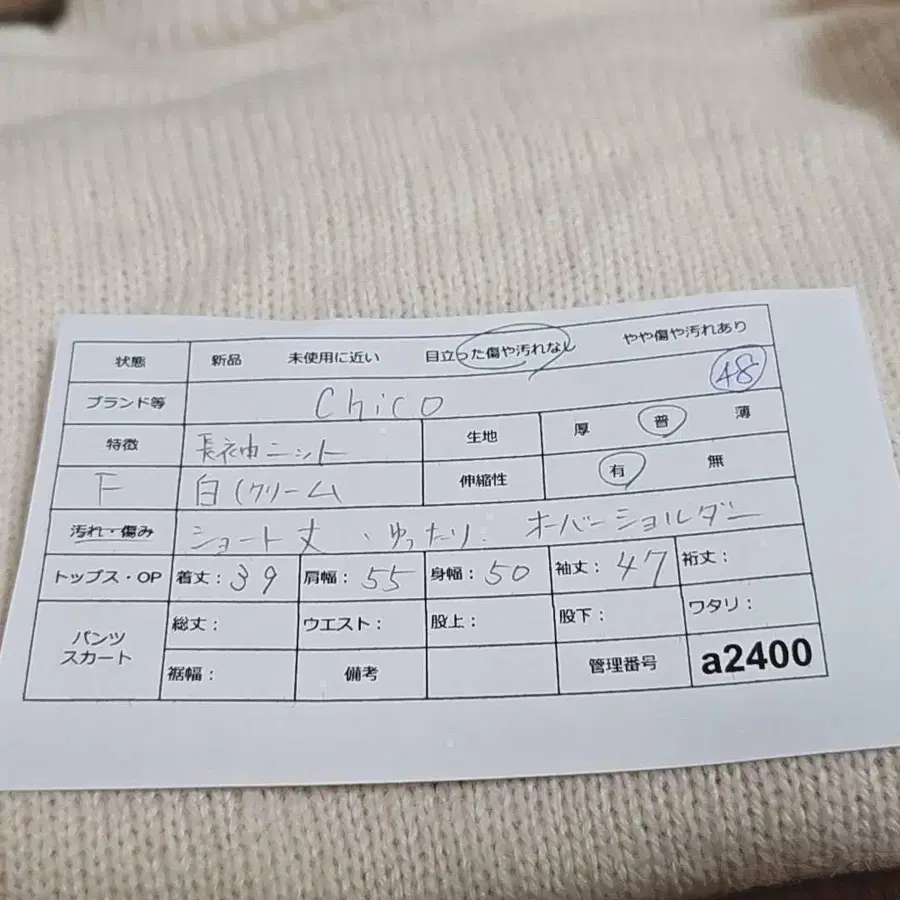 状態 新品 未使用に近い 目立った傷や汚れなし やや傷や汚れあり
ブランド等 Chico 48
特徴 長袖ニット 生地 厚 普 薄
F 白(クリーム 伸縮性 有 無
汚れ・傷み ショート丈、ゆったり、オーバーショルダー
トップス・OP 着丈:39 肩幅:55 身幅:50 袖丈:47 裄丈:
パンツ スカート 総丈: ウエスト: 股上: 股下: ワタリ:
裾幅: 備考 管理番号 a2400